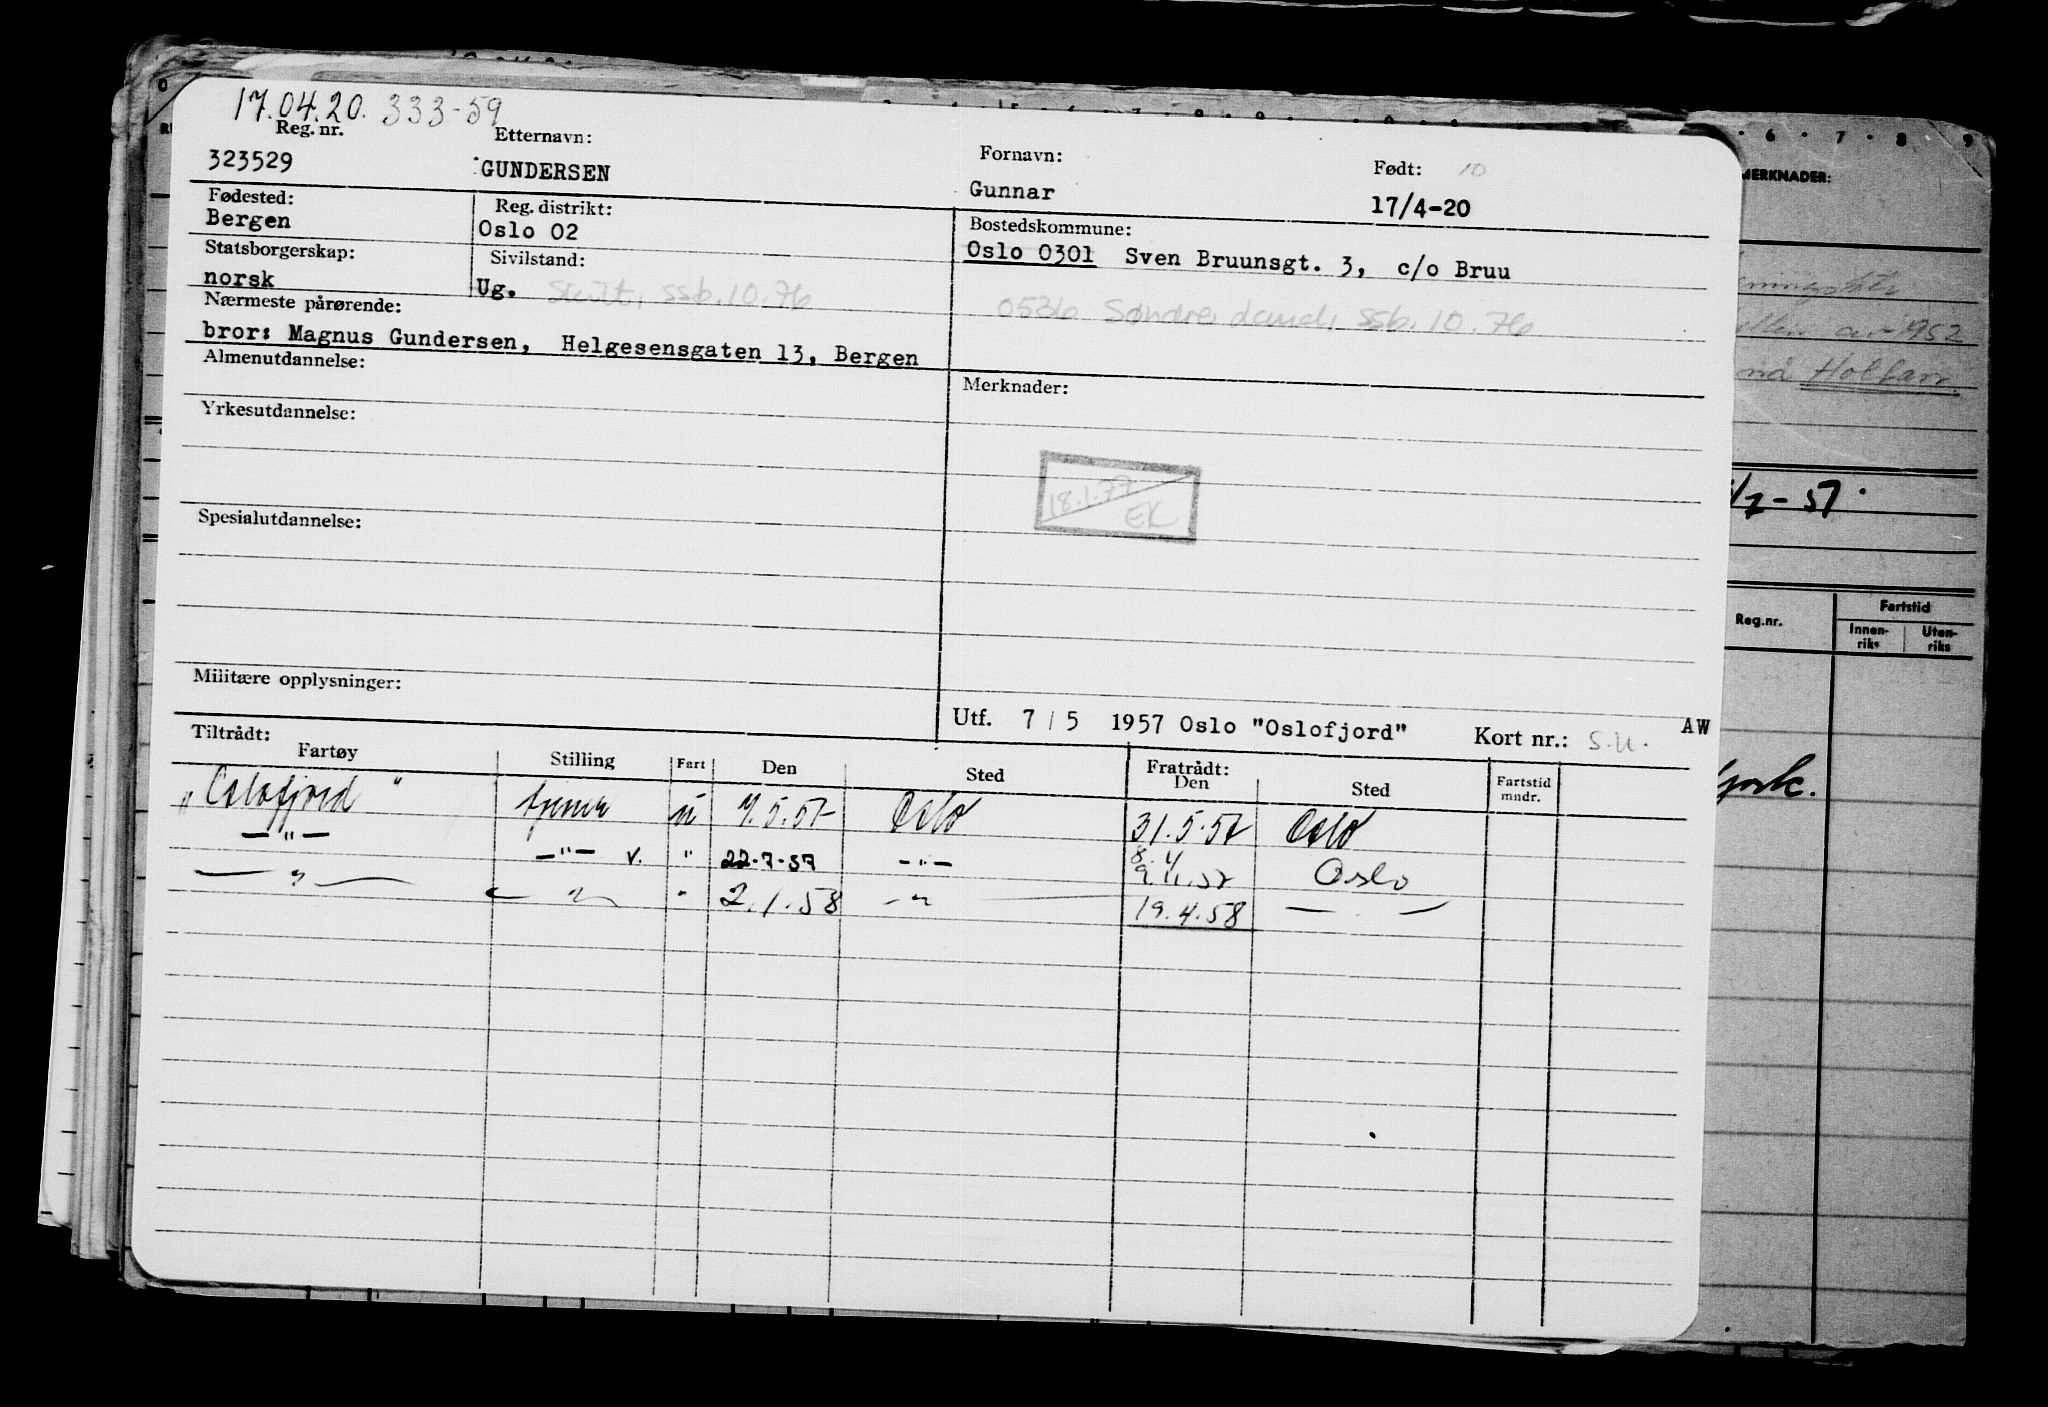 17.04.20. 333-59
Reg. nr. Etternavn: Fornavn: Født: 10
323529 GUNDERSEN Gunnar 17/4-20
Fødested: Reg. distrikt: Bostedskommune:
Bergen Oslo 02 Oslo 0301 Sven Bruunsgt. 3, c/o Bruu
Statsborgerskap: Sivilstand:
norsk Ug. Skilt, ssb. 10.76 0536 Søndre Land, ssb. 10.76
Nærmeste pårørende:
bror: Magnus Gundersen, Helgesensgaten 13, Bergen
Almenutdannelse: Merknader:
Yrkesutdannelse:
18.1.77
EK
Spesialutdannelse:
Militære opplysninger:
Utf. 7/5 1957 Oslo "Oslofjord" Kort nr.: S.U. AW
Tiltrådt: Fratrådt:
Fartøy Stilling Fart Den Sted Den Sted Fartstid mndr.
"Oslofjord" tjener u 7.5.57 Oslo 31.5.57 Oslo
—"— —"— v. " 22-7-57 —"— 9.11.57 Oslo
—"— —"— " 2.1.58 —"— 19.4.58 —"—
6 7 8 9
MERKNADER:
1952
Holfarr.
/7-57
Reg.nr. Fartstid
Innen-riks Uten-riks